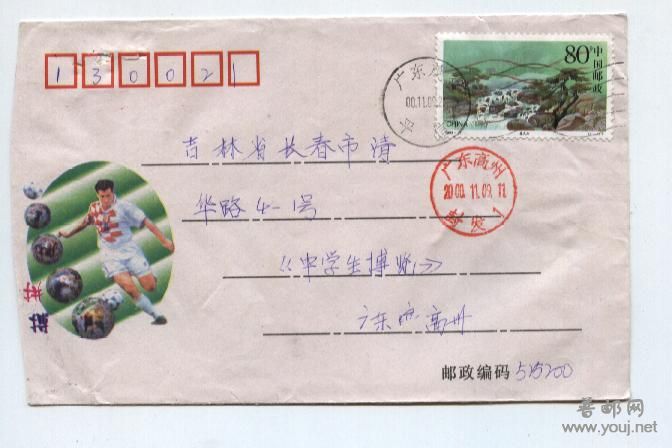 130021
80分
中国邮政
CHINA
广东
00.11.09
吉林省长春市清
华路4-1号
《中学生博览》
广东高州
2000.11.09.11
发
1
广东 高州
邮政编码 525200
普邮网
www.youj.net